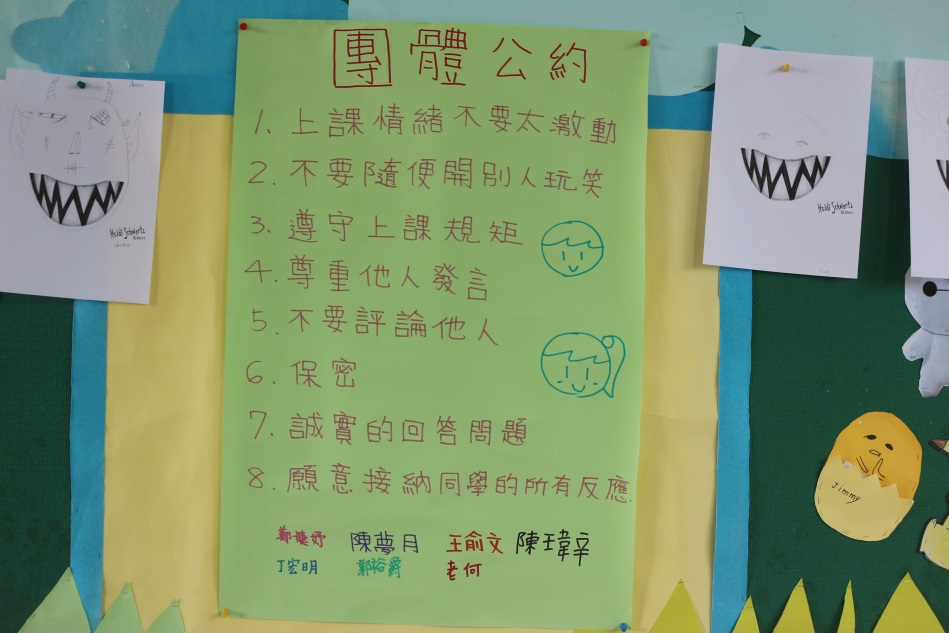 團體公約
1. 上課情緒不要太激動
2. 不要隨便開別人玩笑
3. 遵守上課規矩
4. 尊重他人發言
5. 不要評論他人
6. 保密
7. 誠實的回答問題
8. 願意接納同學的所有反應.
陳夢月 王俞文 陳瑋辛
丁宏明 鄭裕爵 老何
Heidi Schwartz
Heidi Schwartz
Jimmy